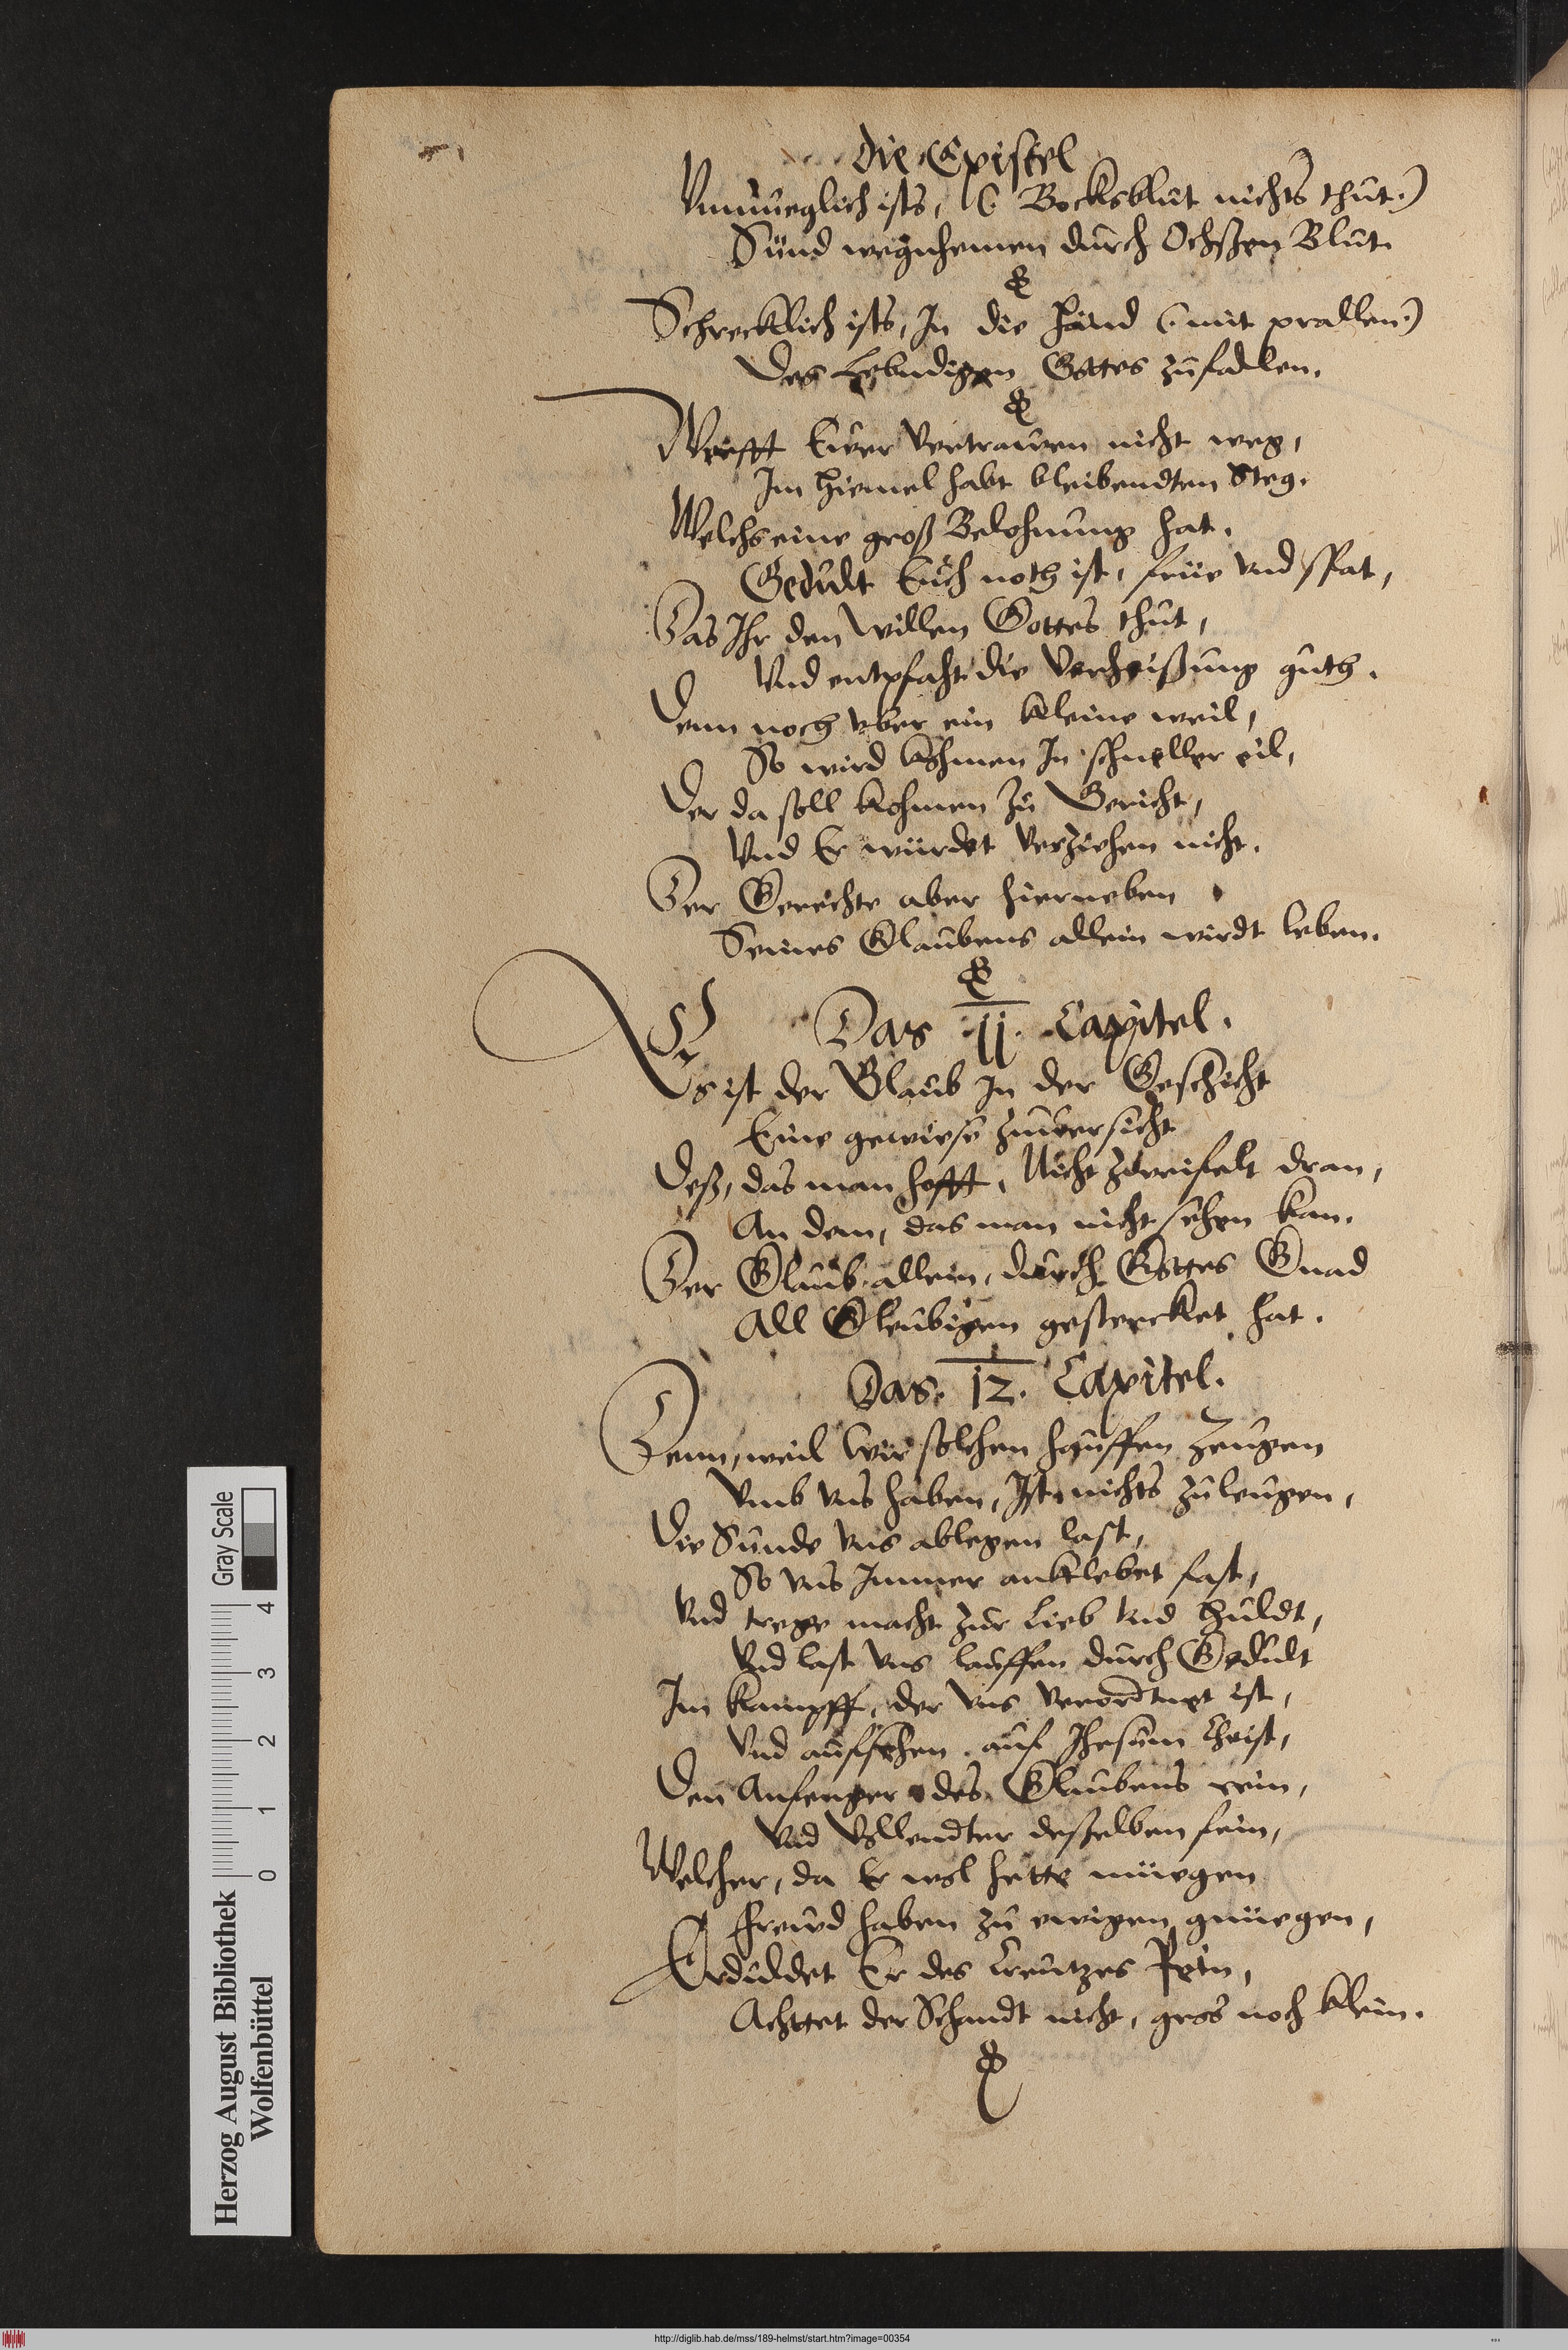 Die Epistel
Vnmüeglich ists, (: Bocksblut nichts thut:)
Sünd wegnhemen durch Ochßen Blut.
Schrecklich ists, In die händ (: mit prallen:)
Des Lebndigen Gottes zufallen.
Werfft Euer Vertrauen nicht weg,
Im Hiemel habt bleibendten Steg.
Welchs eine groß Belohnung hat.
Gedult Euch noth ist, früe vnd spat,
Das Ihr den Willen Gottes thut,
Vnd entpfaht die Verheißung guth.
Denn noch vber ein kleine weil,
So wird kohmen In schneller eil,
Der da soll kohmen Zu Gericht,
Vnd Er würdet Verziehen nicht.
Der Gerechte aber hierneben
Seines Glaubens allein wirdt leben.
Das 11. Capitel.
Es ist der Glaub In der Geschicht
Eine gewiese Zuuersicht
Deß, das man hofft, Nicht Zweifelt dran,
An dem, das man nicht sehen kan.
Der Glaub allein, durch Gottes Gnad
All Gleubigen gestercket hat.
Das. 12. Capitel.
Denn, weil Wir solchen hauffen Zeugen
Vmb vns haben, Ist nichts Zuleugen,
Die Sünde vns ablegen last,
So vns Immer anklebet fast,
Vnd trege macht Zur Lieb Vnd Huldt,
Vnd last vns lauffen durch Gedult
Im Kampff, der Vns Verordtnet ist,
Vnd auffsehen auf Jhesum Christ,
Den Anfenger des Glaubens rein,
Vnd Vollendter deßelben fein,
Welcher, da Er wol hette müegen
Freud haben Zu ewigen gnüegen,
Erduldet Er des Creutzes Pein,
Achttet der Schandt nicht, gros noch klein.
Herzog August Bibliothek
Wolfenbüttel
0 1 2 3 4
Gray Scale
http://diglib.hab.de/mss/189-helmst/start.htm?image=00354